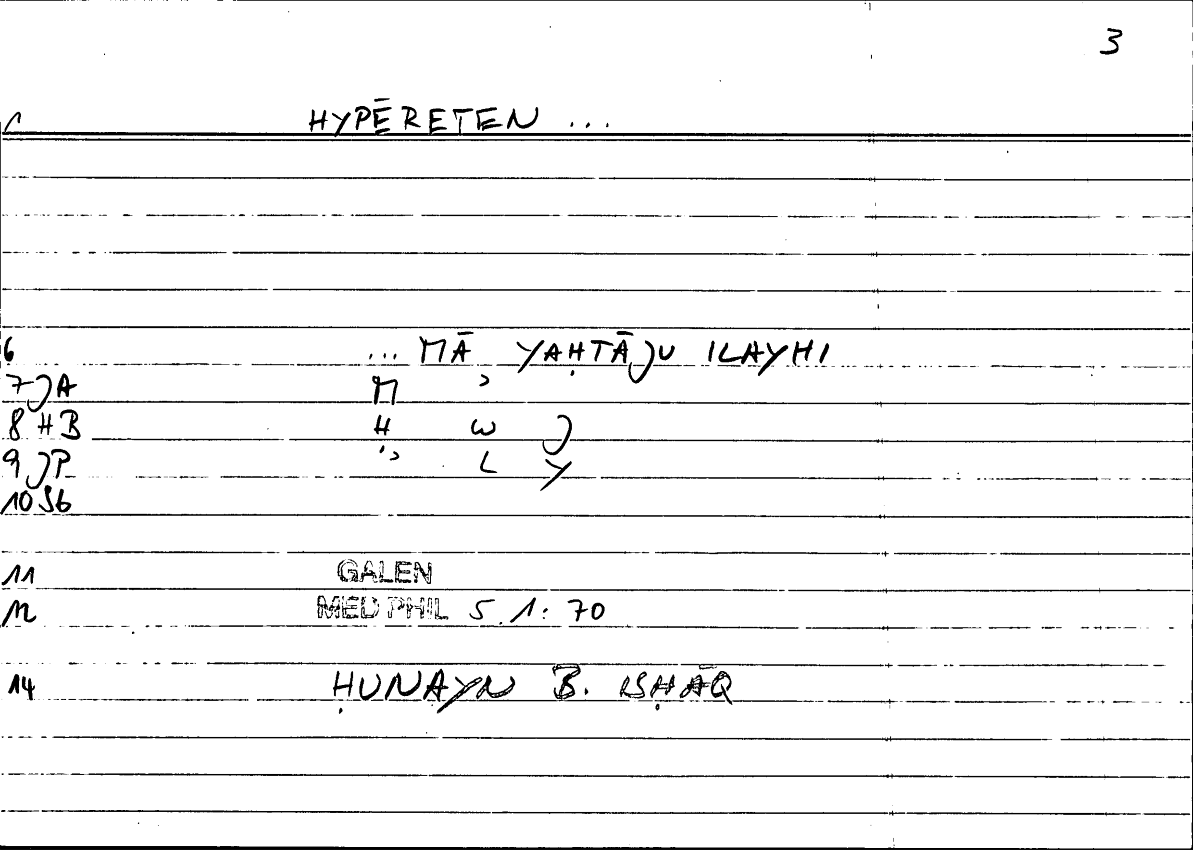 3
1 HYPĒRETEN ...
6 ... MĀ YAḤTĀJU ILAYHI
7 JA M ʾ
8 HB Ḥ W J
9 JP ʾ L Y
10 Sb
11 GALEN
12 MED PHIL 5 1: 70
14 ḤUNAYN B. ISḤĀQ